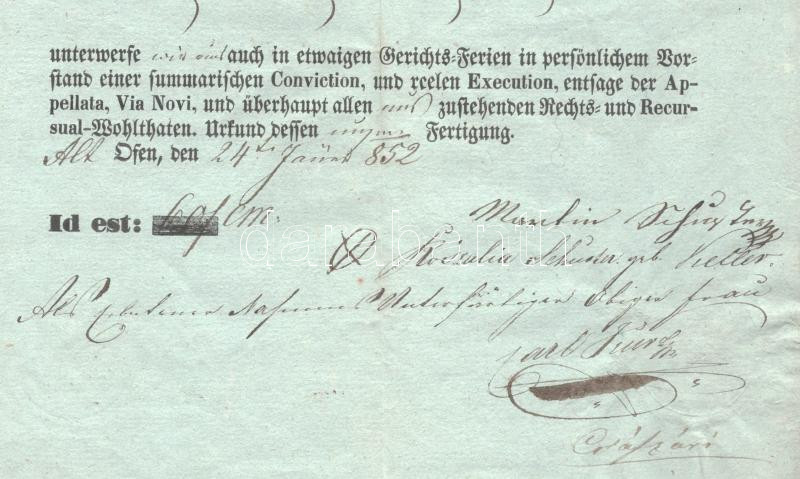 unterwerfe wir uns auch in etwaigen Gerichts-Ferien in persönlichem Vor-
stand einer summarischen Conviction, und reelen Execution, entsage der Ap-
pellata, Via Novi, und überhaupt allen uns zustehenden Rechts- und Recur-
sual-Wohlthaten. Urkund dessen Fertigung.
Alt Ofen, den 24ten Jäner 852
Id est:
Martin Schuster
Rosalia Schuster geb. Keller.
Als Nahmens Unterfertiger Obiger Frau
Carl